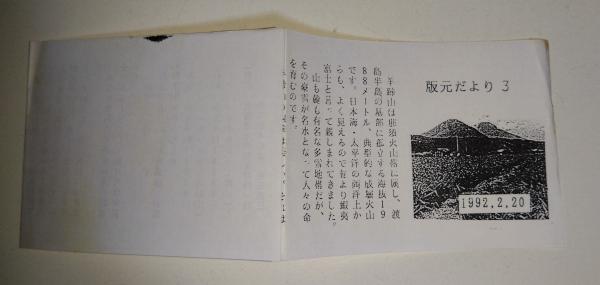 版元だより 3
1992.2.20
羊蹄山は那須火山帯に属し、渡
島半島の基部に孤立する海抜19
88メートル、典型的な成層火山
です。日本海・太平洋の両洋上か
らも、よく見えるので昔より蝦夷
富士と言って親しまれてきました。
山も麓も有名な多雪地帯だが、
その豪雪が名水となって人々の命
を育むのです。